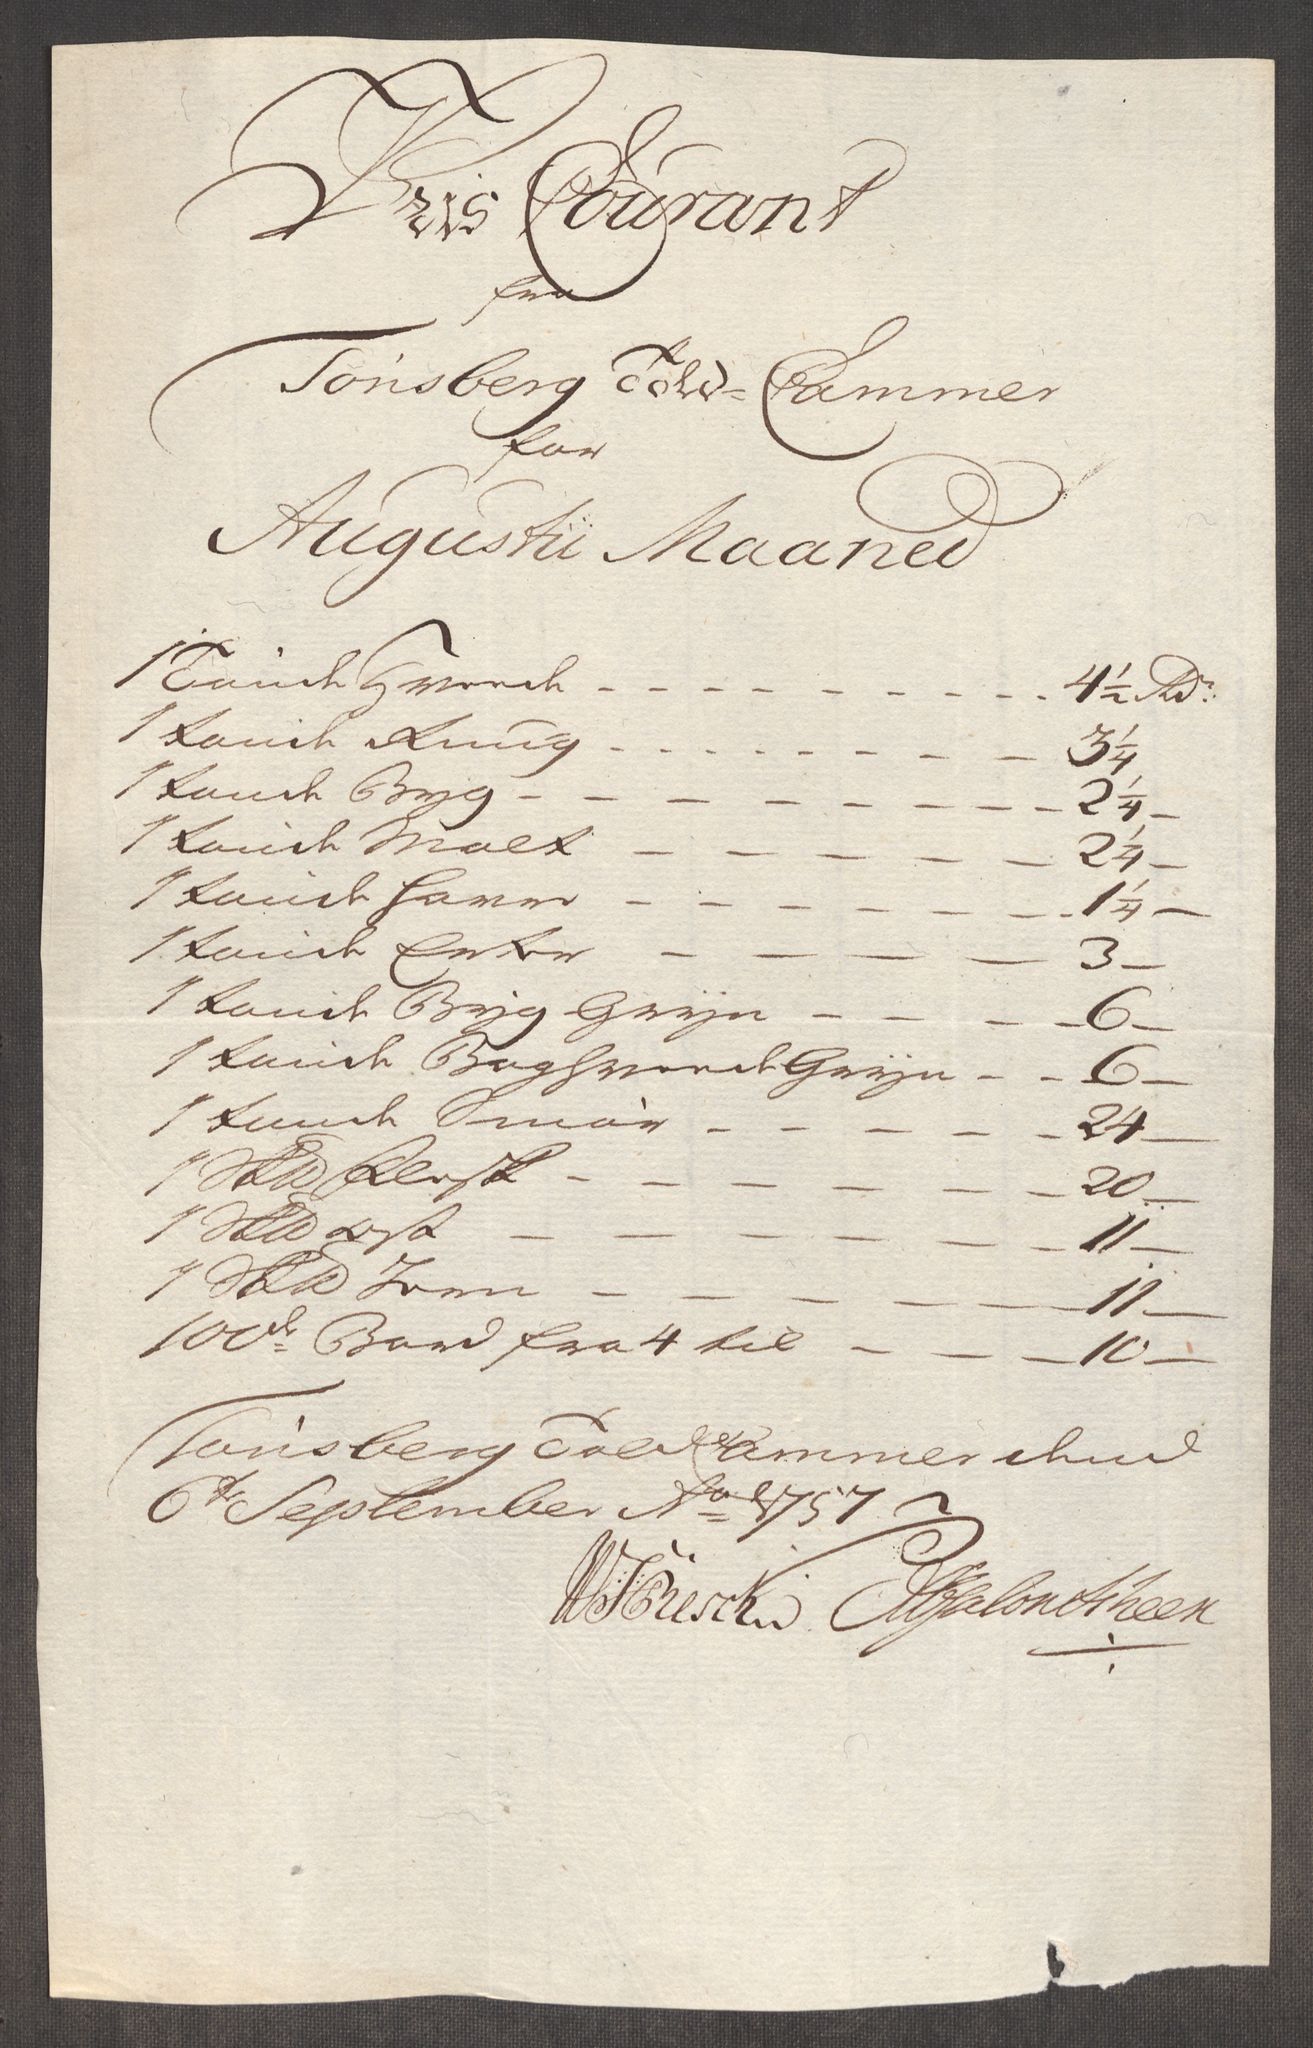 Pris Courant
fra
Tönsberg Told-Cammer
for
Augustii Maaned
1 Tönde Hvede - - - - - - - - - 4 1/2 Rdr:
1 tönde Rug - - - - - - - - 3 1/4
1 tönde Byg - - - - - - - - 2 1/4 -
1 tönde Malt - - - - - - 2 1/4 -
1 tönde Havre - - - - - - 1 1/4 -
1 tönde Erter - - - - - 3 -
1 tönde Byg Gryn - - - - 6 -
1 tönde Boghvede Gryn - - 6 -
1 tönde Smör - - - - - 24 -
1 Skd Flesk - - - - - - - 20 -
1 Skd ost - - - - - - - 11 -
1 Skd Jern - - - - - - 11 -
100de Bord fra 4 til - - - 10 -
Tönsberg Told Cammer dend
6te September Ao 1757